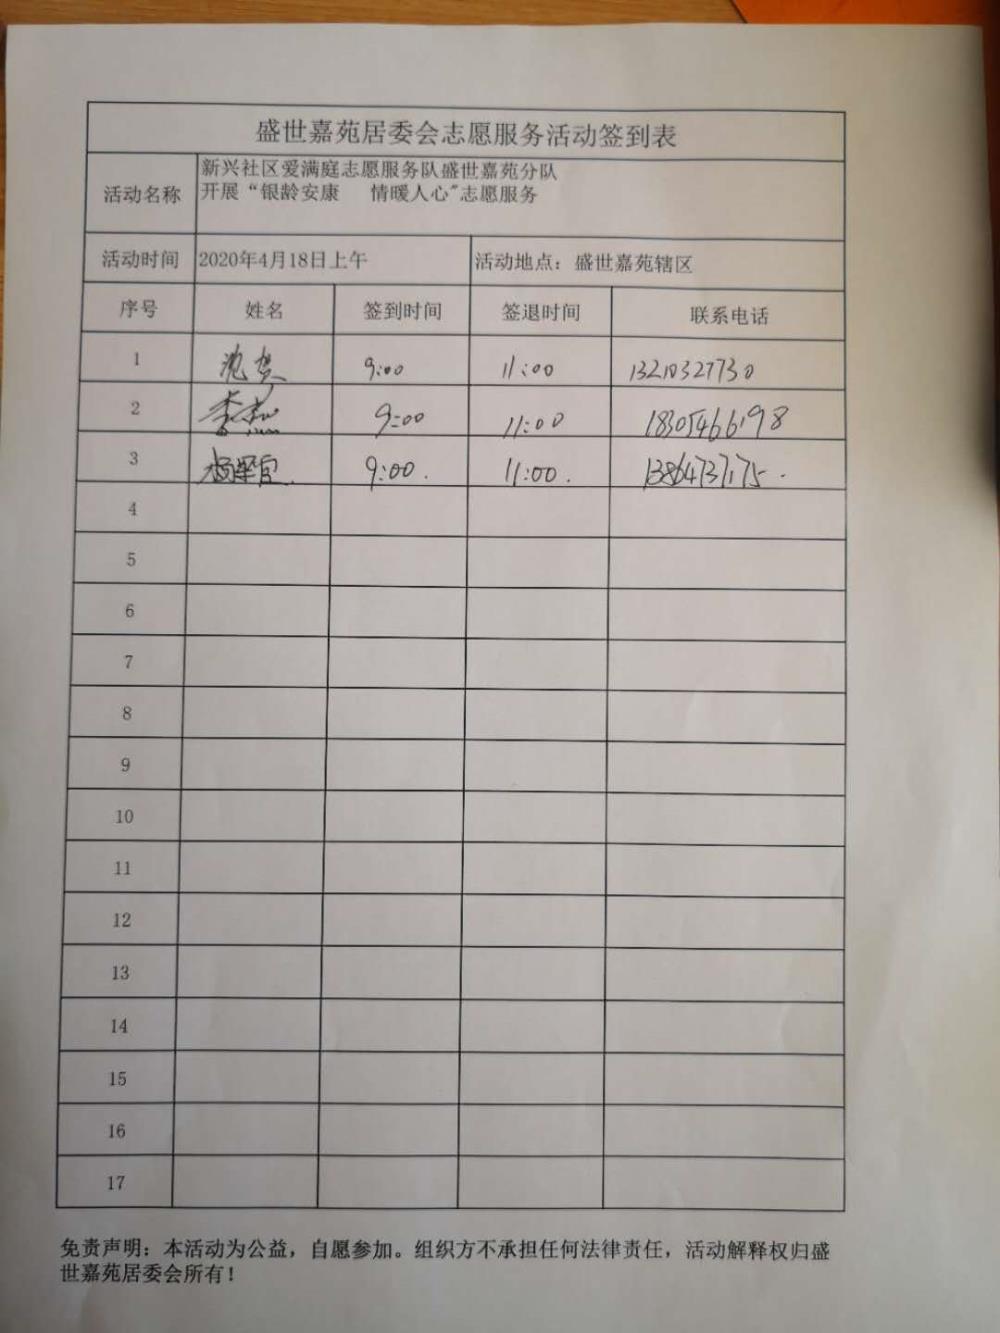 盛世嘉苑居委会志愿服务活动签到表
活动名称 新兴社区爱满庭志愿服务队盛世嘉苑分队
开展“银龄安康 情暖人心"志愿服务
活动时间 2020年4月18日上午 活动地点：盛世嘉苑辖区
序号 姓名 签到时间 签退时间 联系电话
1 9:00 11:00
2 李杰 9:00 11:00 18305466198
3 9:00. 11:00. 13864737175.
4
5
6
7
8
9
10
11
12
13
14
15
16
17
免责声明：本活动为公益，自愿参加。组织方不承担任何法律责任，活动解释权归盛
世嘉苑居委会所有！